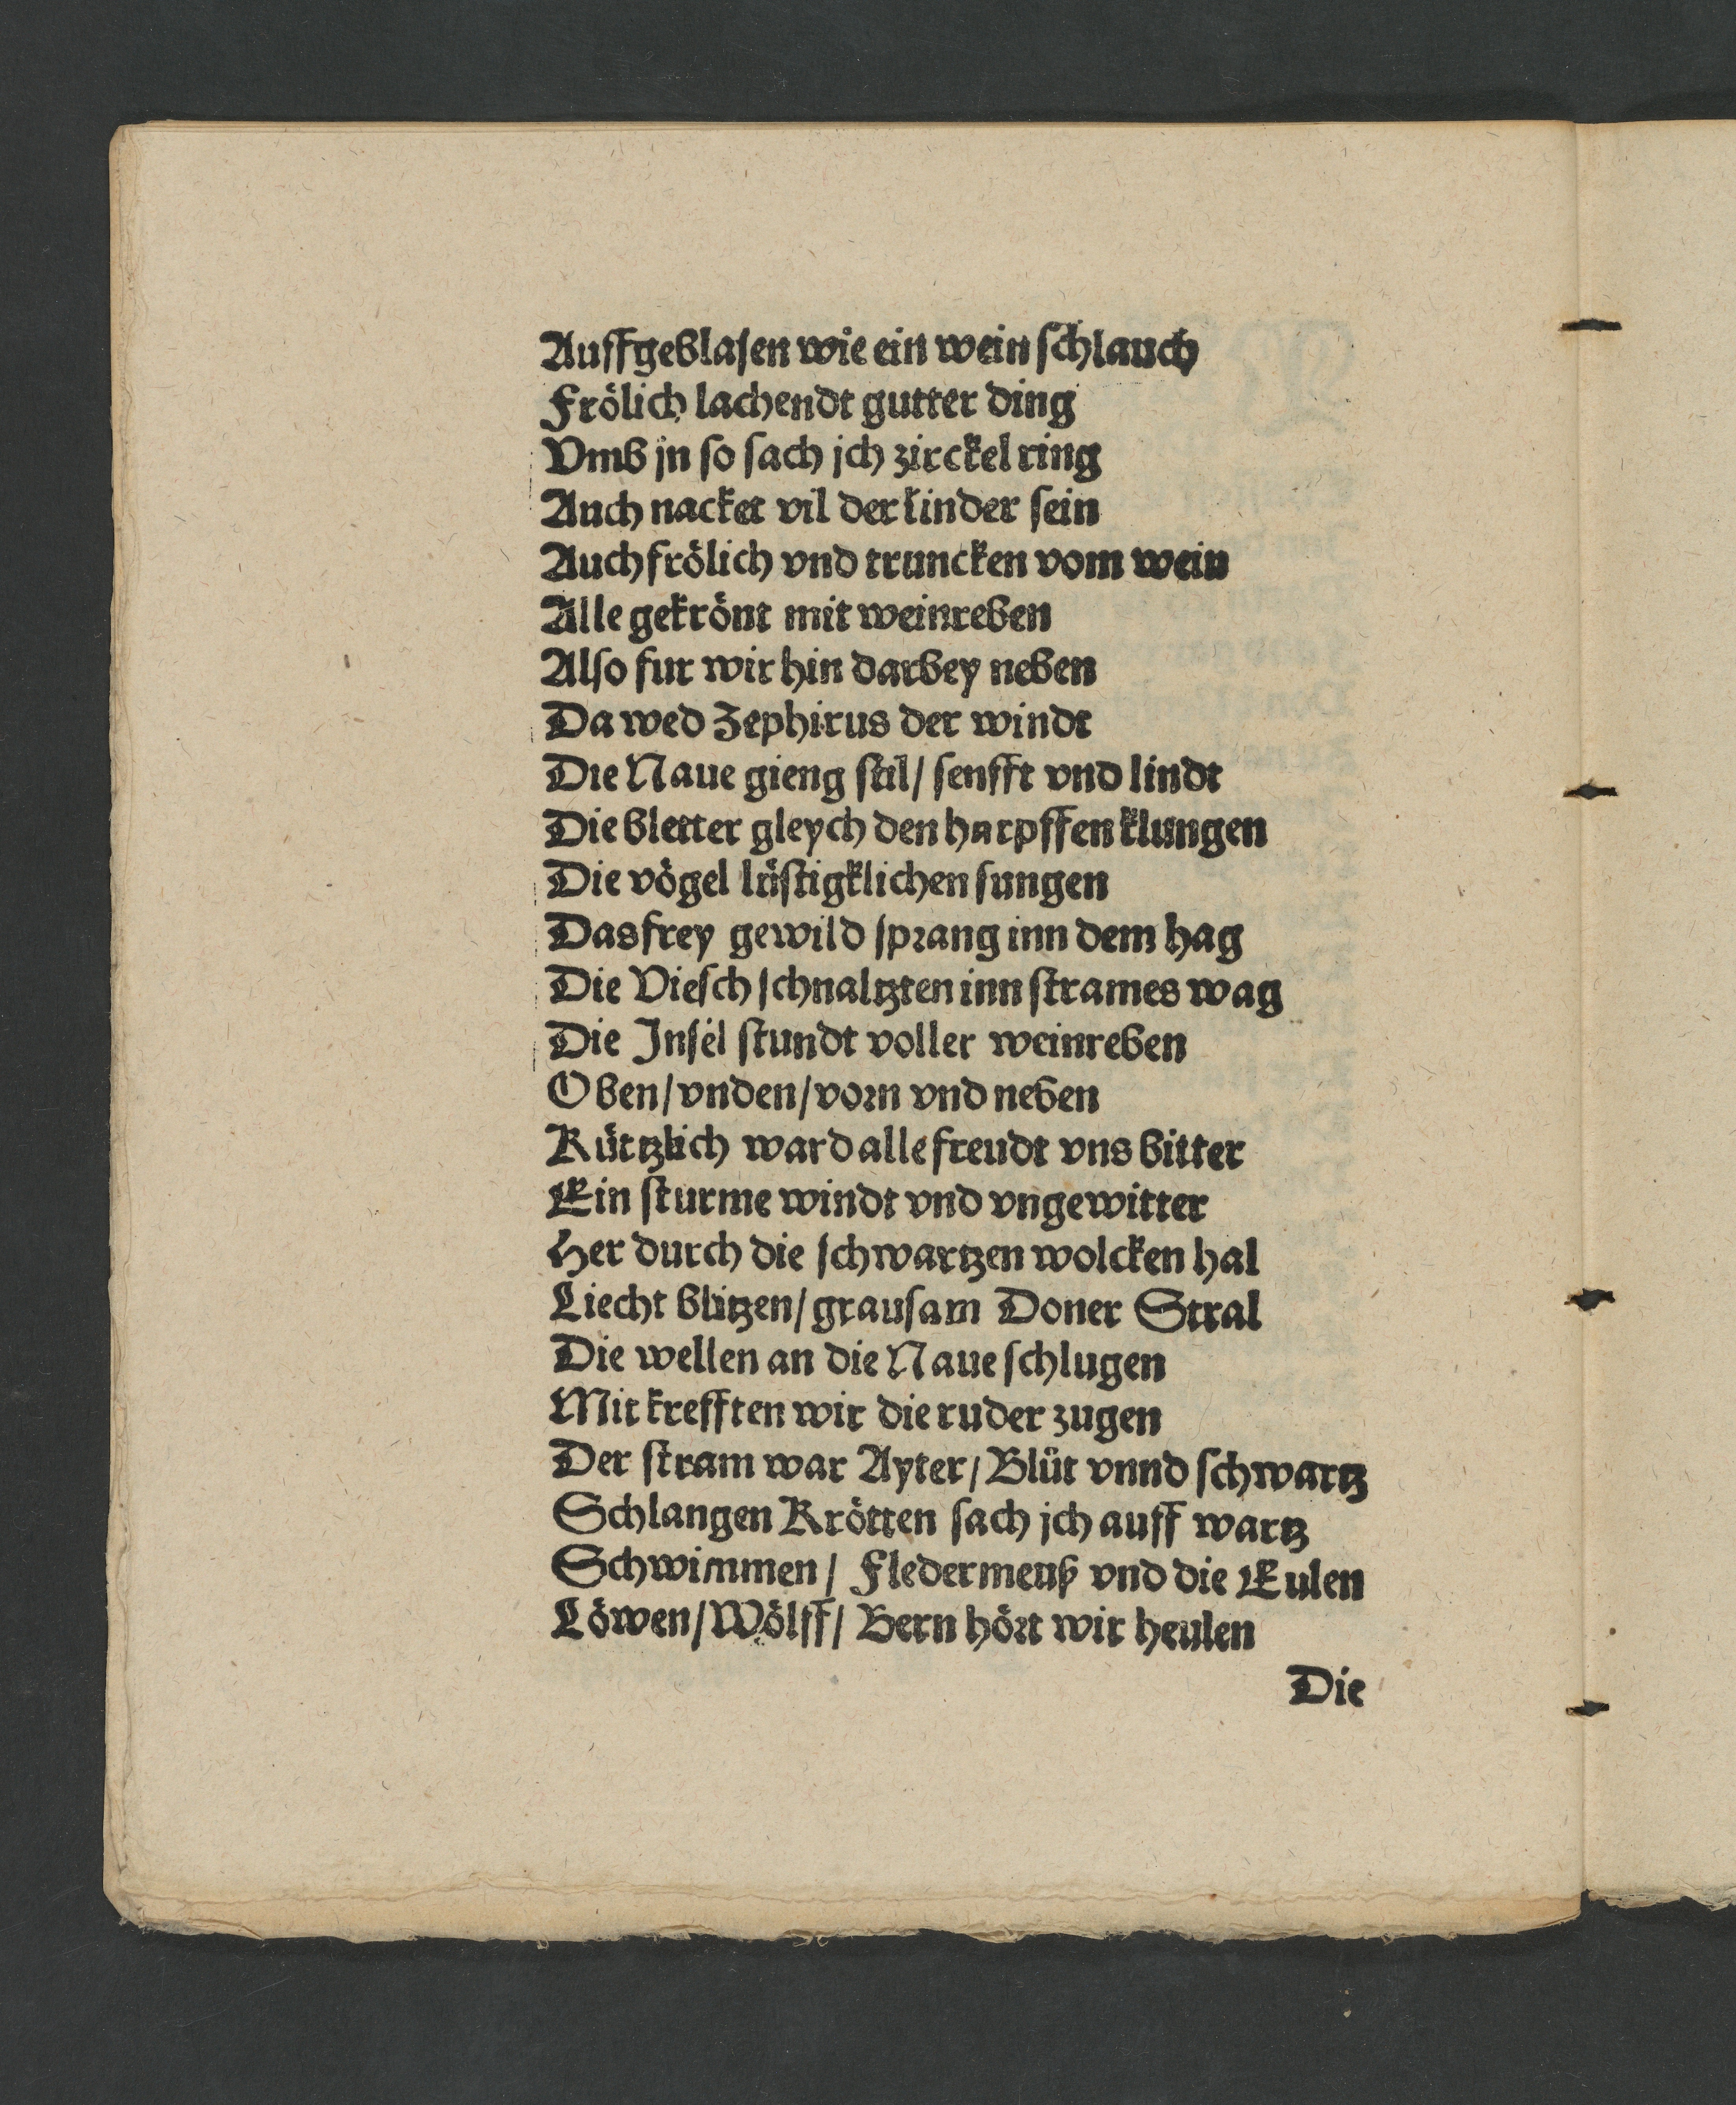 Auffgeblasen wie ein wein schlauch
Frölich lachendt gutter ding
Vmb jn so sach jch zirckel ring
Auch nacket vil der kinder sein
Auch frölich vnd truncken vom wein
Alle gekrönt mit weinreben
Also fur wir hin darbey neben
Da wed Zephirus der windt
Die Naue gieng stil/ senfft vnd lindt
Die bletter gleych den harpffen klungen
Die vögel lüstigklichen sungen
Das frey gewild sprang inn dem hag
Die Viesch schnaltzten inn strames wag
Die Insel stundt voller weinreben
Oben/ vnden/ vorn vnd neben
Kürtzlich ward alle freudt vns bitter
Ein sturme windt vnd vngewitter
Her durch die schwartzen wolcken hal
Liecht blitzen/ grausam Doner Stral
Die wellen an die Naue schlugen
Mit krefften wir die ruder zugen
Der stram war Ayter/ Blüt vnnd schwartz
Schlangen Krötten sach jch auff wartz
Schwimmen/ Fledermeuß vnd die Eulen
Löwen/ Wölff/ Bern hört wir heulen
Die